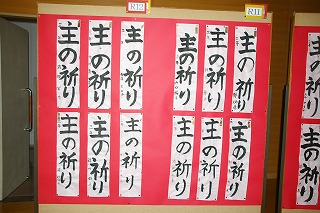 R12
R11
主の祈り
主の祈り
主の祈り
主の祈り
主の祈り
主の祈り
主の祈り
主の祈り
主の祈り
主の祈り
主の祈り
主の祈り
主の祈り
主の祈り